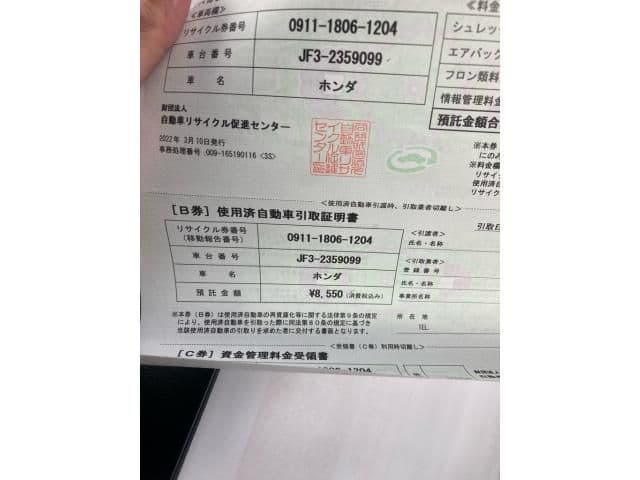 <車両欄>
<料金
リサイクル券番号 0911-1806-1204
シュレッ
車台番号 JF3-2359099
エアバック
車名 ホンダ
フロン類料
情報管理料金
預託金額合
財団法人
自動車リサイクル促進センター
2022年 3月10日発行
事務処理番号:009-165190116 <3S>
※本券
にのみ
※料金欄
リサイク
使用済自
リサイク
<使用済自動車引渡時、引取業者切離し>
[B券] 使用済自動車引取証明書
引取日
リサイクル券番号
(移動報告番号) 0911-1806-1204
<引渡者>
氏名・名称
車台番号 JF3-2359099
<引取業者>
登録番号
車名 ホンダ
氏名・名称
預託金額 ¥8,550(消費税込み)
事業所名称
所在地
TEL
※本券(B券)は使用済自動車の再資源化等に関する法律第9条の規定
により、使用済自動車を引取った際に同法第80条の規定に基づき
当該使用済自動車の引取りを求めた者に交付する書面となります。
<受領書(C券)利用時切離し>
[C券] 資金管理料金受領書
1806-1204